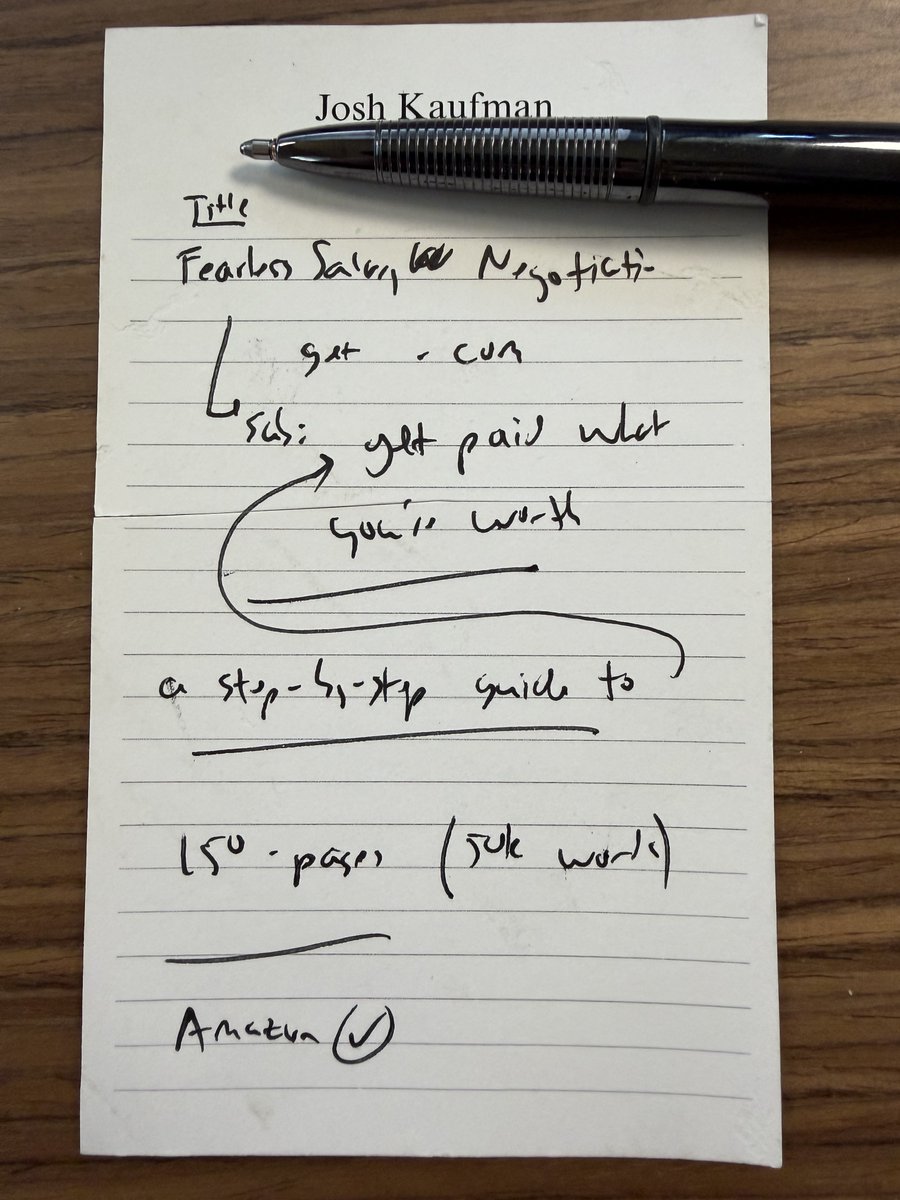 Josh Kaufman
Title
Fearless Salary Negotiati
get .com
Sub: get paid what
you're worth
a step-by-step guide to
150-pages (50k words)
Amazon ✓